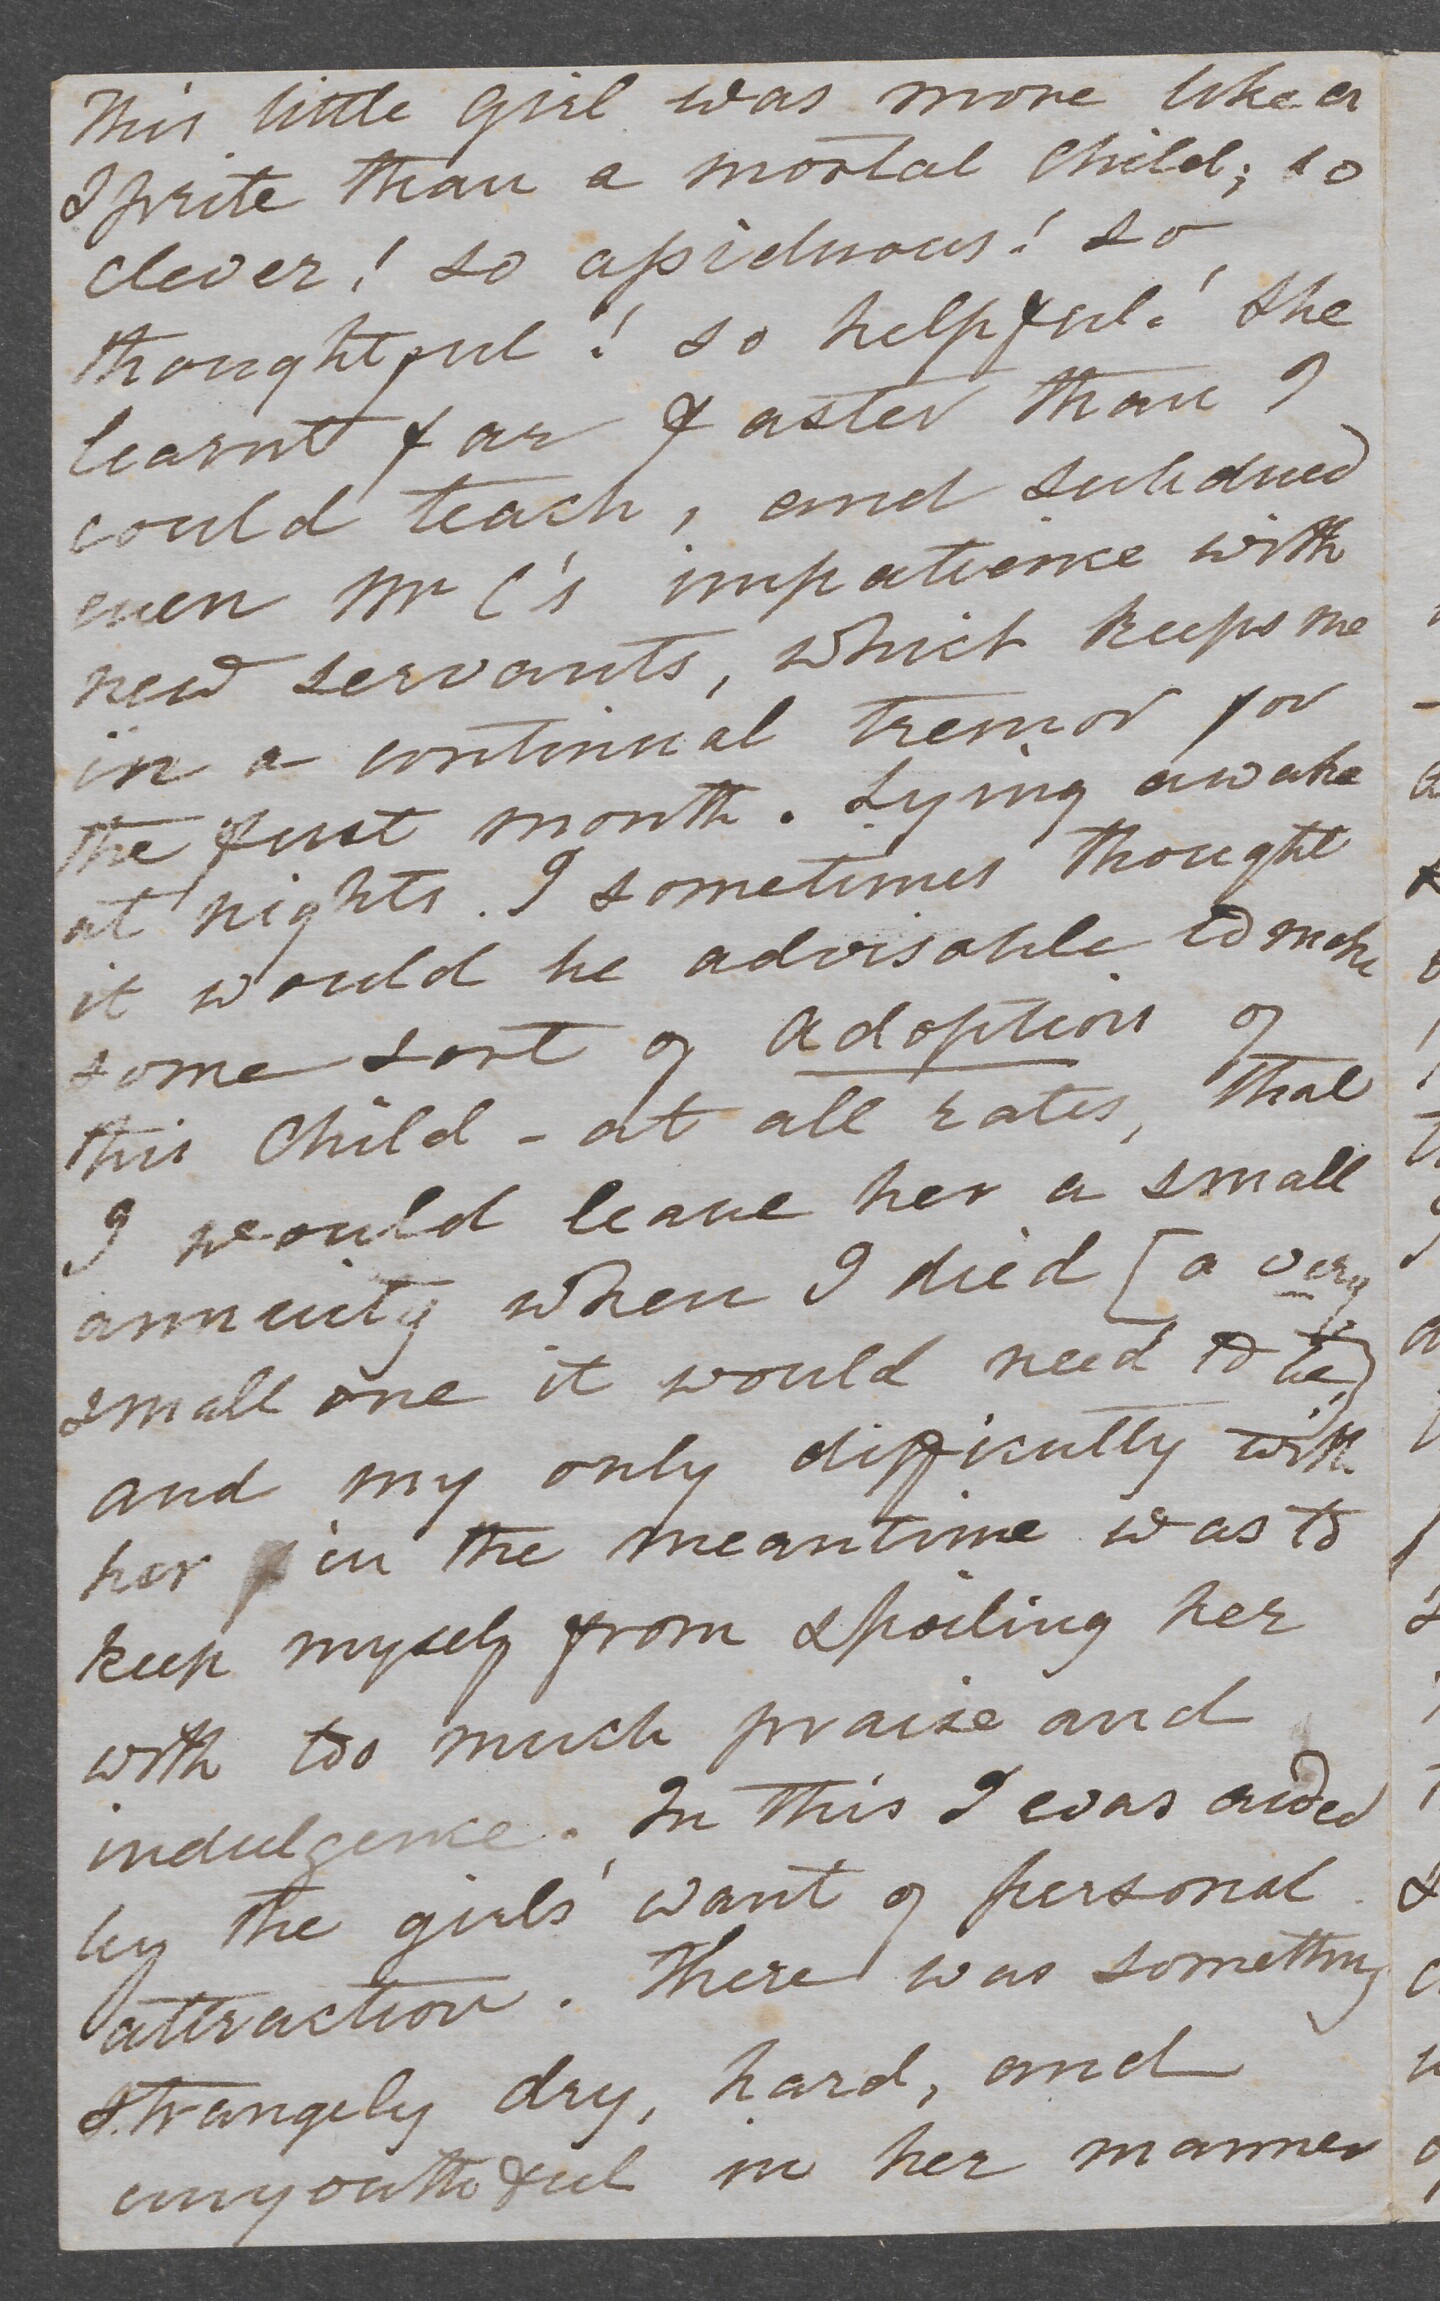 This little girl was more like a
Sprite than a mortal Child; so
clever! so assiduous! so
thoughtful! so helpful! She
learnt far faster than I
could teach, and subdued
even Mr C's impatience with
new servants, which keeps me
in a continual tremor for
the first month. Lying awake
at nights. I sometimes thought
it would be advisable to make
some sort of adoption of
this Child - at all rates, that
I would leave her a small
annuity when I died [a very
small one it would need to be)
and my only difficulty with
her in the meantime was to
keep myself from spoiling her
with too much praise and
indulgence. In this I was aided
by the girls' want of personal
attraction. There was something
strangely dry, hard, and
unyouthful in her manner